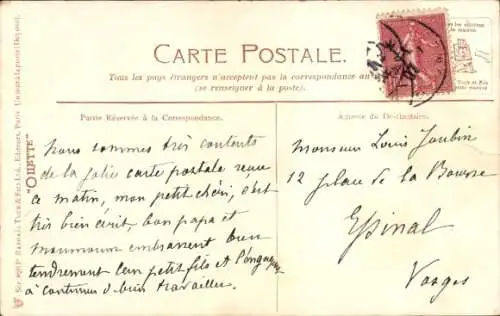 CARTE POSTALE.
Tous les pays étrangers n'acceptent pas la correspondance au
(se renseigner à la poste).
Partie Réservée à la Correspondance.
Nous sommes très contents
de la jolie carte postale reçue
ce matin, mon petit chéri, c'est
très bien écrit, bon papa et
embrassent bien
tendrement leur petit fils et l'engagent
à continuer à bien travailler.
Adresse du Destinataire.
Monsieur Louis Joubin
12 place de la Bourse
Epinal
Vosges
"ODETTE"
RAPHAEL TUCK & FILS Ltd., Editeurs, Paris